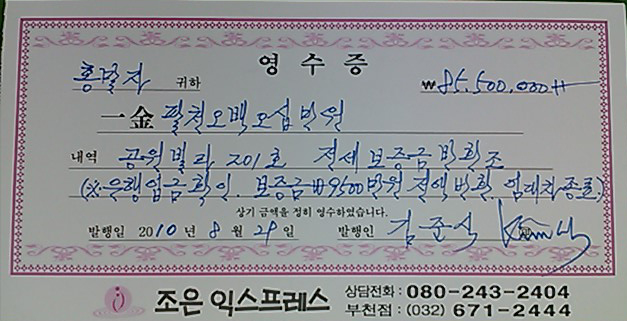 영수증
홍말자 귀하 ₩85,500,000#
一金 팔천오백오십만원
내역 공원빌라 201호 전세보증금반환조
(※은행입금확인. 보증금₩9500만원 전액반환. 임대차종료.)
상기 금액을 정히 영수하였습니다.
발행일 2010년 8월 28일 발행인 김준식
조은 익스프레스 상담전화 : 080-243-2404
부천점 : (032) 671-2444